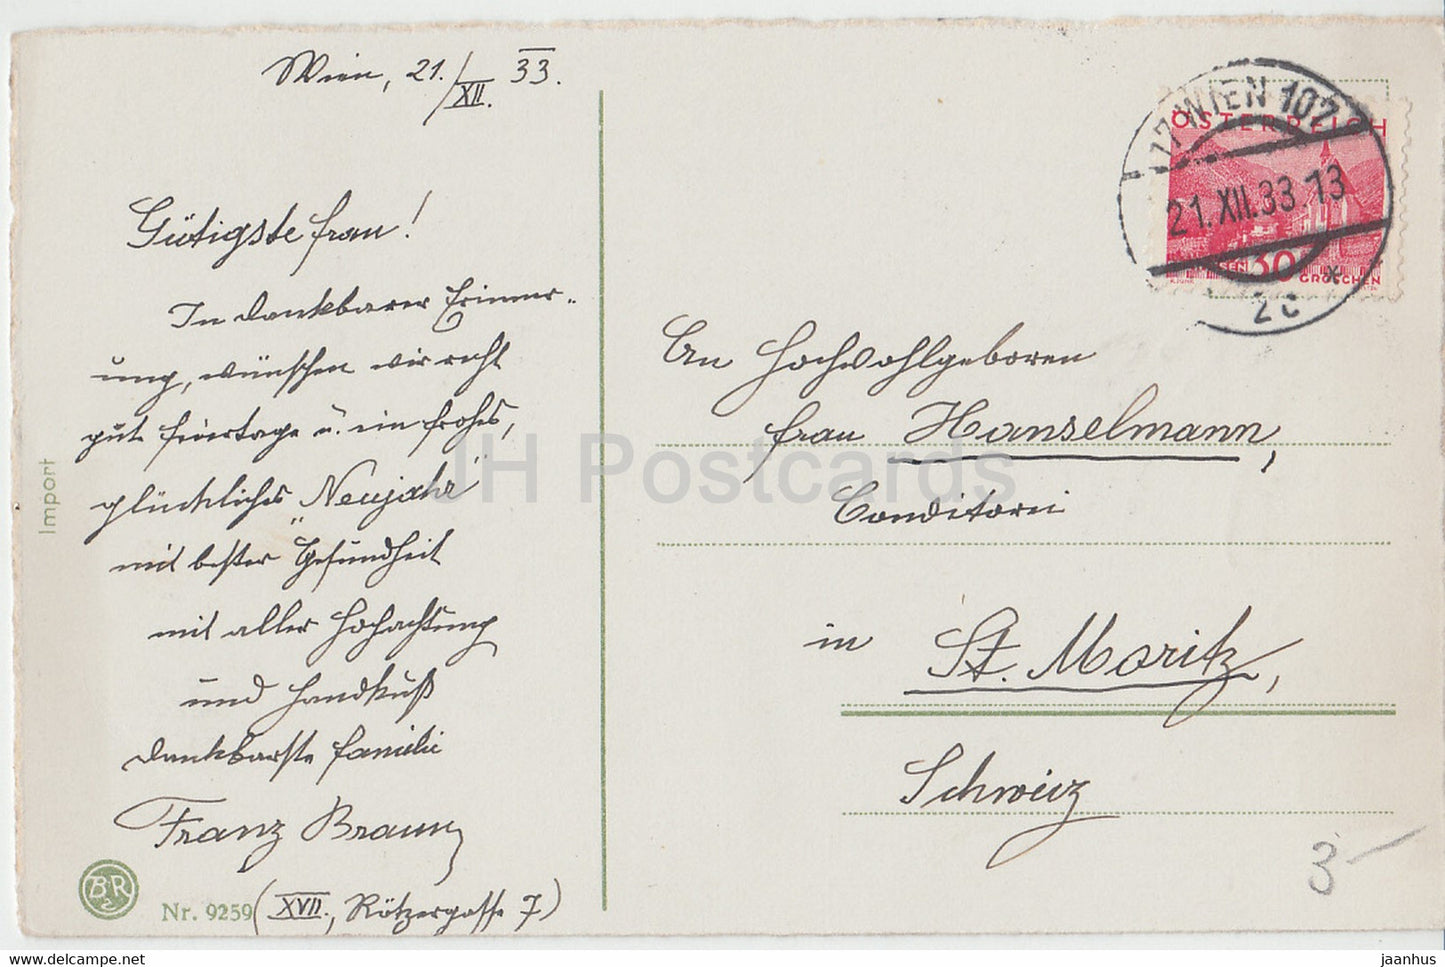 Wien, 21./XII. 33.
Gütigste Frau!
In dankbarer Erinner-
ung, wünschen wir recht
gute Feiertage u. ein frohes,
glückliches "Neujahr"
mit bester Gesundheit
mit aller Hochachtung
und Handkuß
dankbarste Familie
Franz Braun
(XVII., Rötzergasse 7)
BR
Nr. 9259
Import
17 WIEN 102
21.XII.33.13
2c
*
ÖSTERREICH
30
GROSCHEN
An Hochwohlgeboren
Frau Hanselmann,
Conditorei
in St. Moritz,
Schweiz
3-
JH Postcards
www.delcampe.net
jaanhus